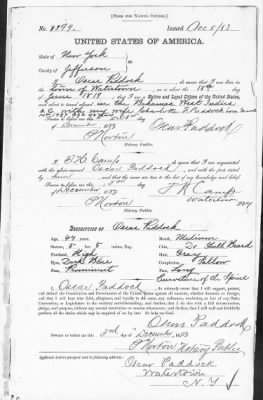 [FORM FOR NATIVE CITIZEN.]
No. 4099. Issued Dec 5/83
UNITED STATES OF AMERICA.
State of New York
County of Jefferson
I, Oscar Paddock, do swear that I was born in the
town of Watertown, on or about the 18th day
of June, 18; that I am a Native and Loyal Citizen of the United States,
and about to travel abroad in the Bahamas West Indies
Sworn to before me this 3rd day
of December 1883
P Morton Oscar Paddock
Notary Public.
I, T H Camp, do swear that I am acquainted
with the above-named Oscar Paddock, and with the facts stated by
him, and that the same are true to the best of my knowledge and belief.
Sworn to before me this day
of December 1883 T H Camp
P Morton Watertown
Notary Public. NY
DESCRIPTION OF Oscar Paddock
Age, years. Mouth, Medium
Stature, 5 feet 8 inches, Eng. Chin, Full Beard
Forehead, High Hair, Gray
Eyes, Dark Blue Complexion, Sallow
Nose, Prominent Face, Long
Curvature of the Spine
I, Oscar Paddock, do solemnly swear that I will support, protect,
and defend the Constitution and Government of the United States against all enemies, whether domestic or foreign;
and that I will bear true faith, allegiance, and loyalty to the same, any ordinance, resolution, or law of any State,
Convention, or Legislature to the contrary notwithstanding; and further, that I do this with a full determination,
pledge, and purpose, without any mental reservation or evasion whatsoever; and further, that I will well and faithfully
perform all the duties which may be required of me by law: So help me God.
Oscar Paddock
Sworn to before me this 3rd day of December, 1883
P Morton Notary Public
Applicant desires passport sent to following address:
Oscar Paddock
Watertown
N.Y.